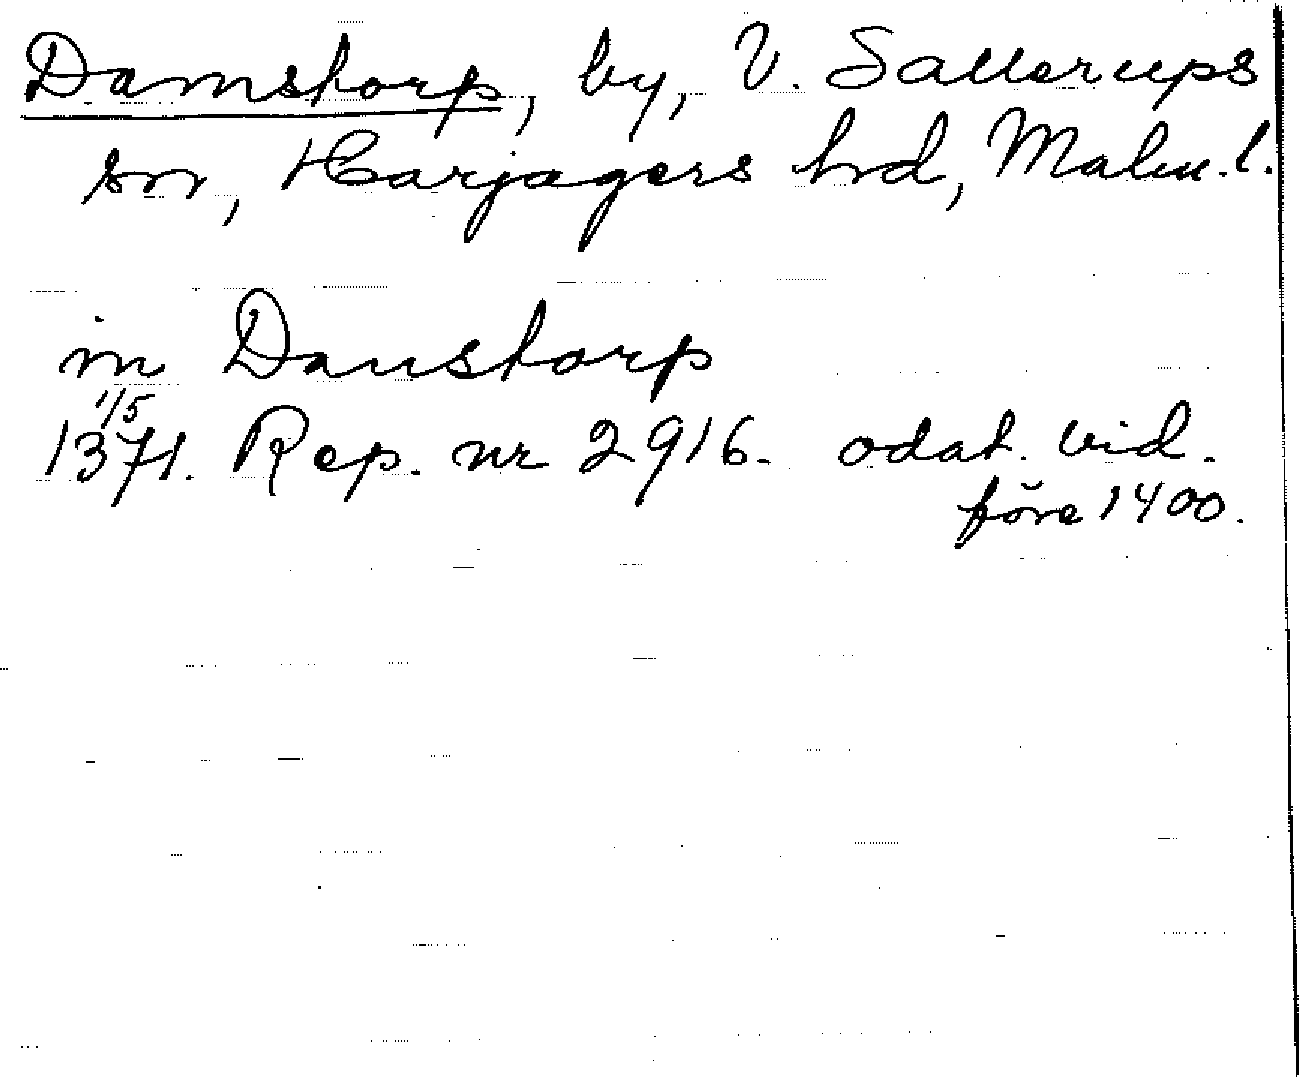 Damstorp, by, V. Sallerups
sn, Harjagers hd, Malm.l.
in Danstorp
1/5
1371. Rep. nr 2916. odat. vid.
före 1400.